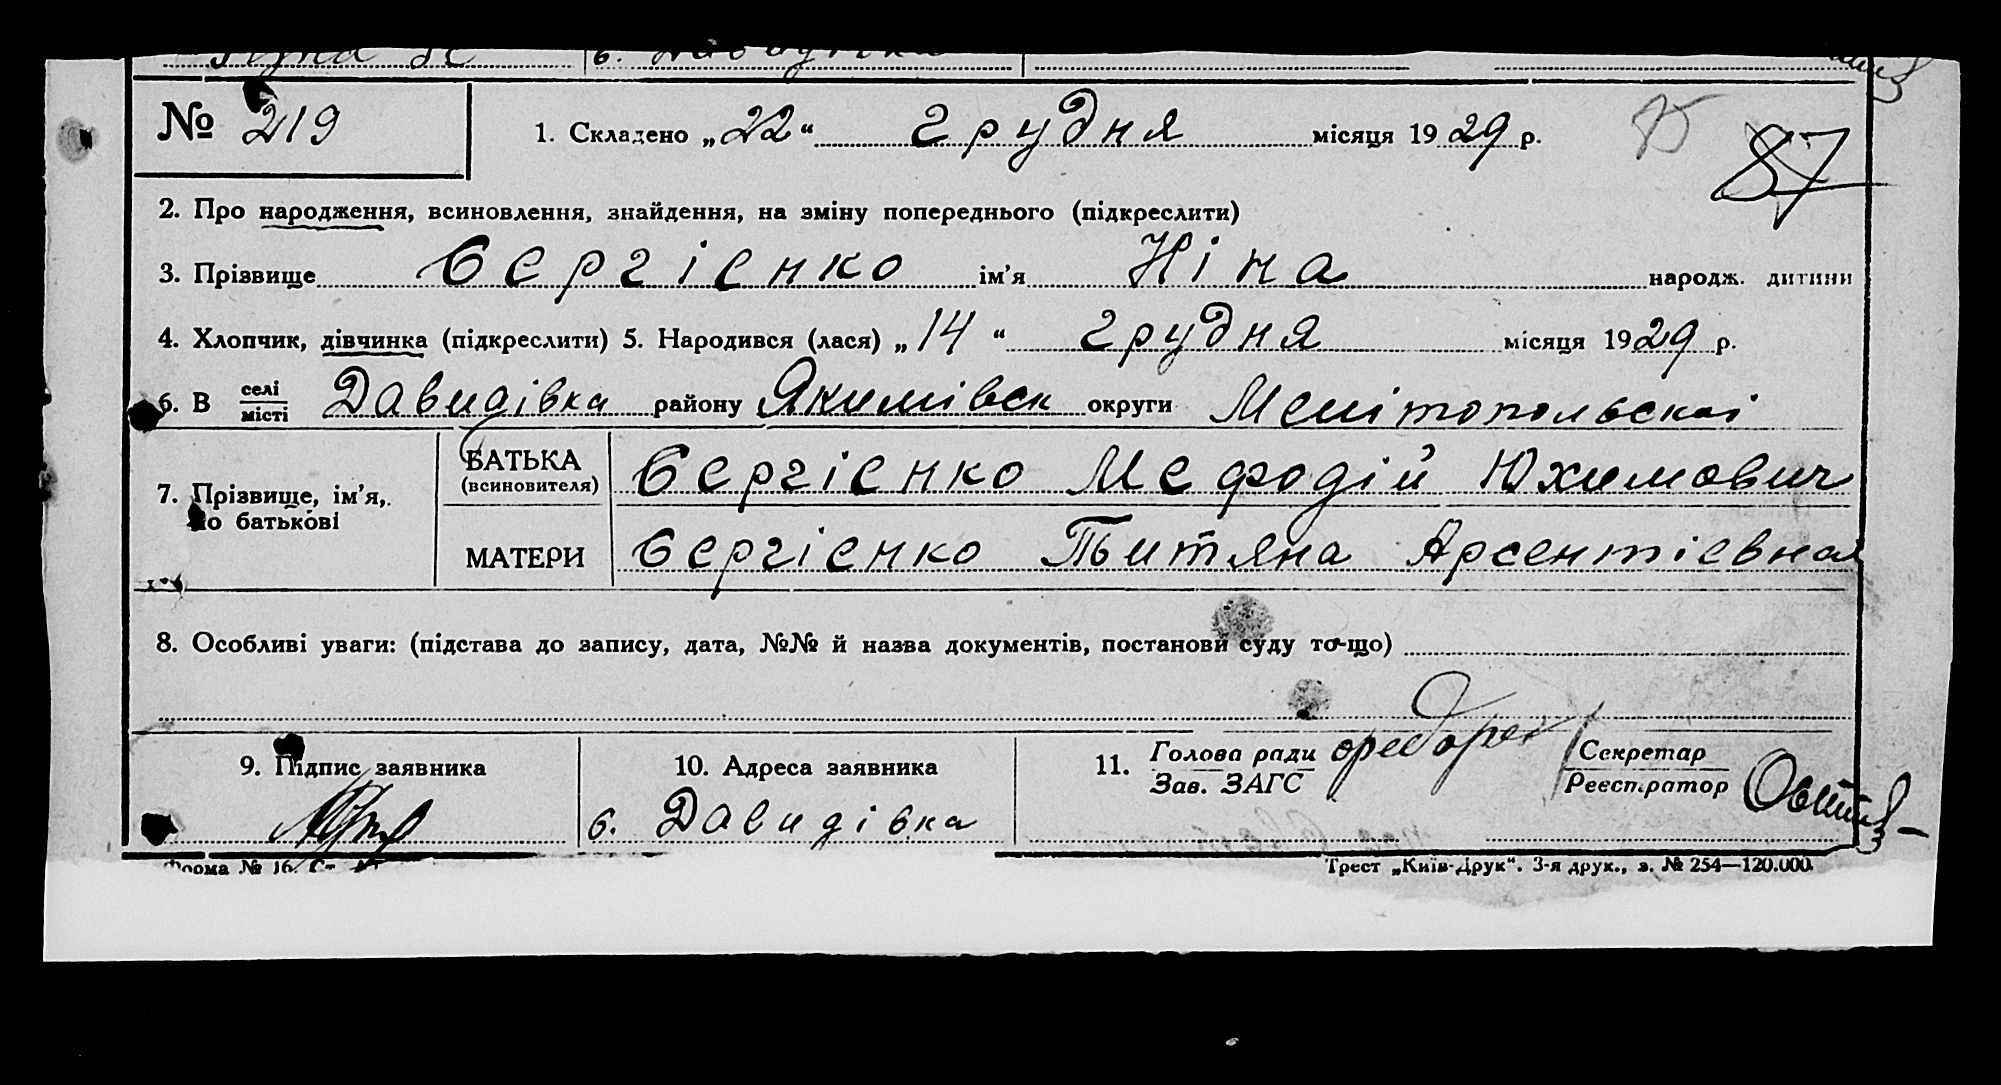 № 219
1. Складено „22“ грудня місяця 1929 р.
87
2. Про народження, всиновлення, знайдення, на зміну попереднього (підкреслити)
3. Прізвище Сергієнко ім’я Ніна народж. дитини
4. Хлопчик, дівчинка (підкреслити) 5. Народився (лася) „14“ грудня місяця 1929 р.
6. В селі Давидівка району Якимівск округи Мелітопольскої
місті
7. Прізвище, ім’я, по батькові
БАТЬКА (всиновителя) Сергієнко Мефодій Юхимович
МАТЕРИ Сергієнко Титяна Арсентіевна
8. Особливі уваги: (підстава до запису, дата, №№ й назва документів, постанови суду то-що)
9. Підпис заявника
10. Адреса заявника
с. Давидівка
11. Голова ради
Зав. ЗАГС
Секретар
Реєстратор
Форма № 16.
Трест „Київ-Друк“. 3-я друк., з. № 254—120.000.